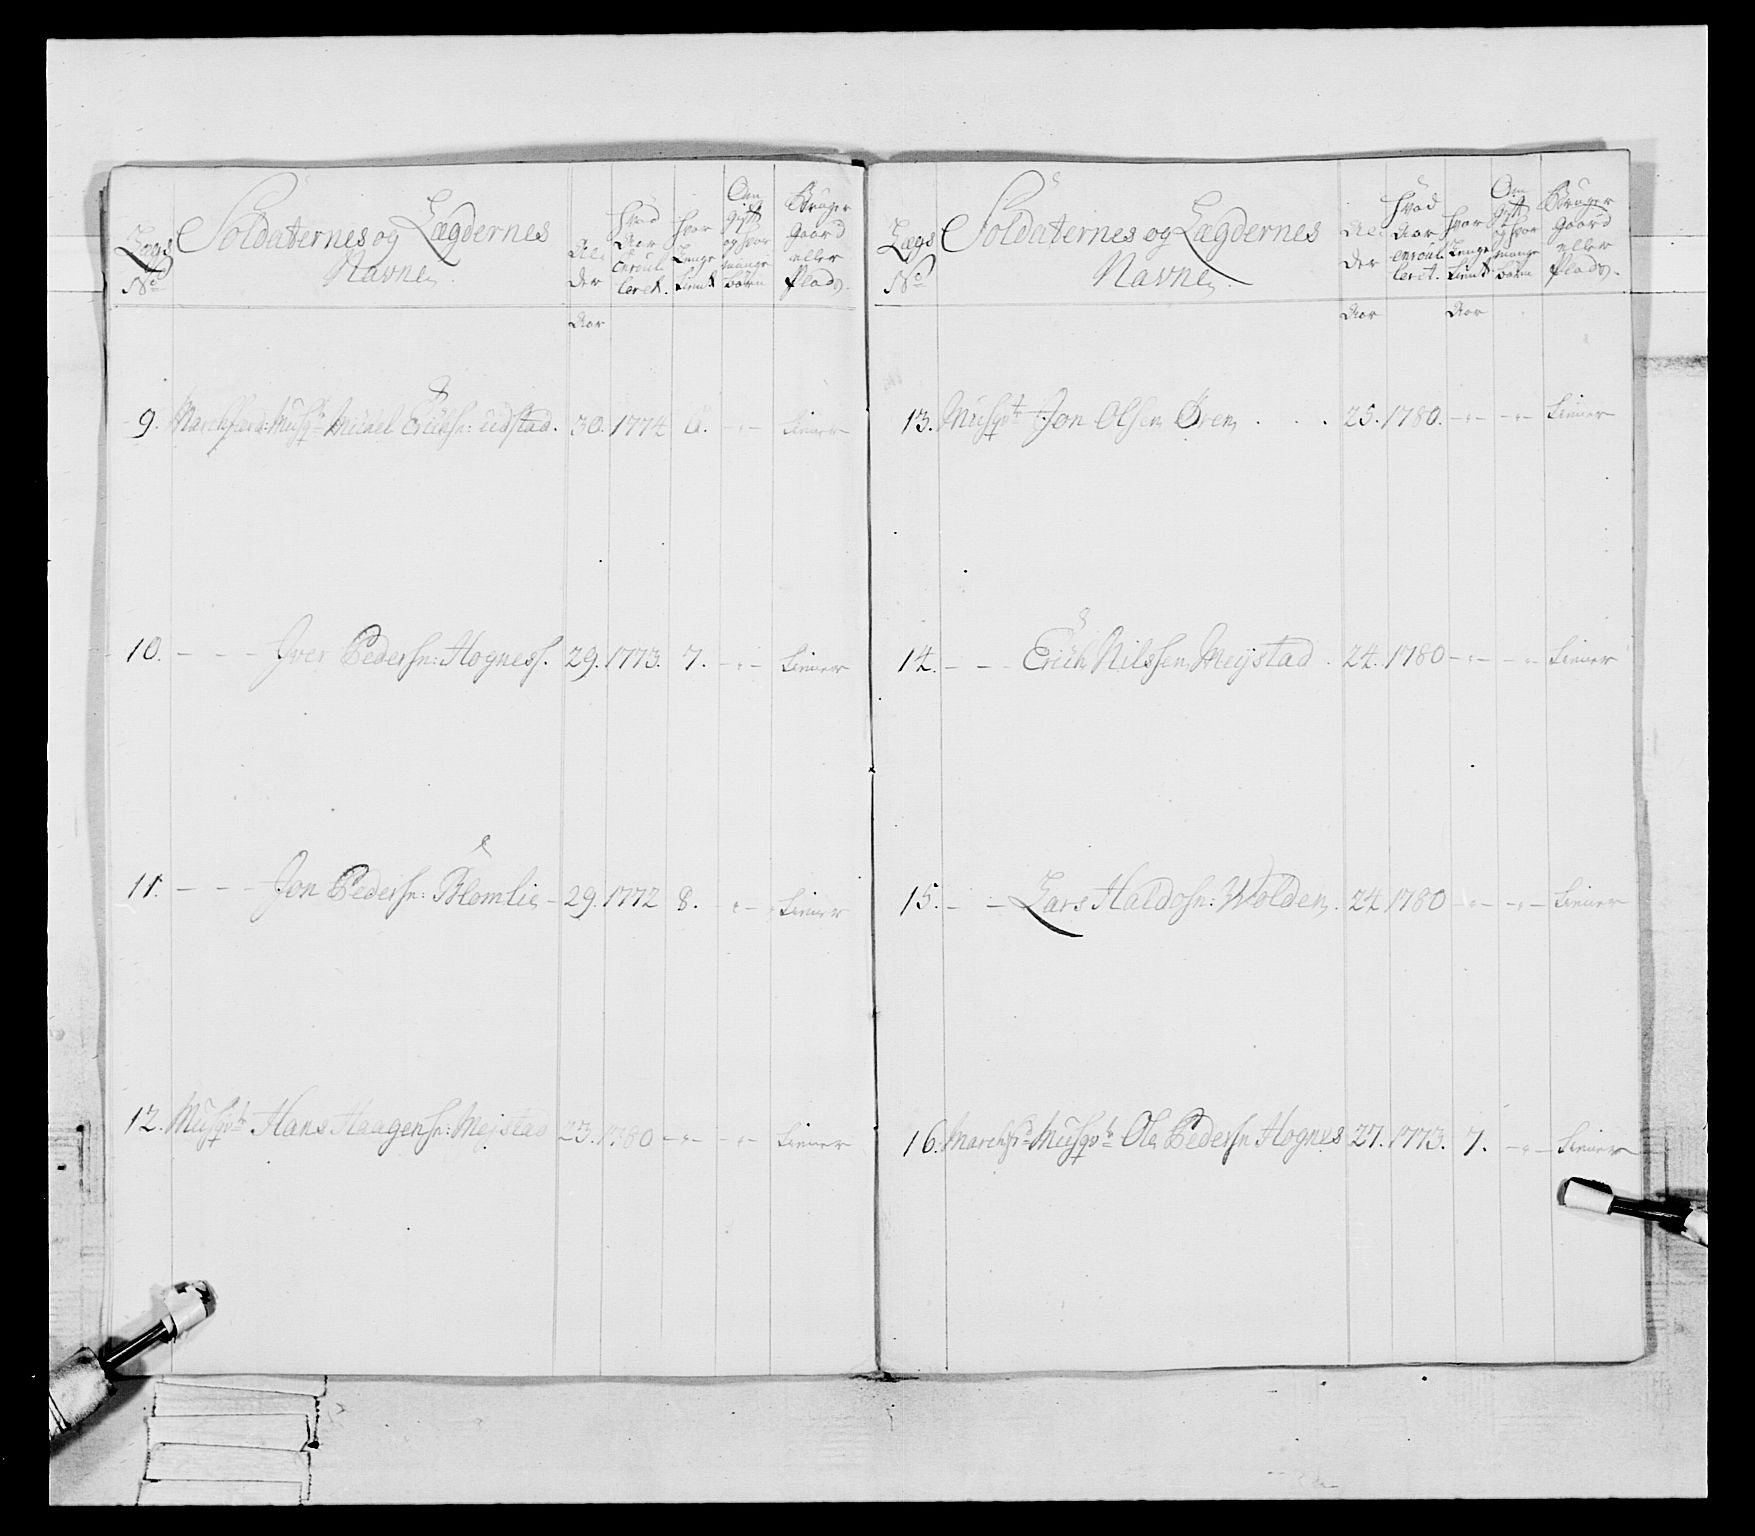 Lægs No
Soldaternes og Lægdernes Navne
Al: der
Hvad Aar enroul leret.
Hvor Lenge tient
Om gift og hvor mange Børn
Bruger Gaard eller Plads.
Aar
9. Marchfærd: Musqt Michel Erichsn: Eidstad. 30. 1774 6. - - - tiener
10. - - - Iver Pedersn: Hognes. 29. 1773. 7. - - - tiener
11. - - - Jon Pedersn: Blomlie - 29. 1772 8. - - - tiener
12. Musqt Hans Haagensn: Mejstad 23. 1780 - - - - - - tiener
Lægs No
Soldaternes og Lægdernes Navne
Al: der
Hvad Aar enroul leret.
Hvor Lenge tient
Om gift og hvor mange Børn
Bruger Gaard eller Plads.
Aar Aar
13. Musqt Jon Olsen Øren . . . 25. 1780. - - - - - tiener
14. - - - Erich Nilssen Mejstad . 24. 1780 - - - - - tiener
15. - - Lars Haldosn: Wolden . 24 1780 - - - - - tiener
16. Marchfr: Musqt Ole Pedersn Hognes 27. 1773. 7. - - - tiener